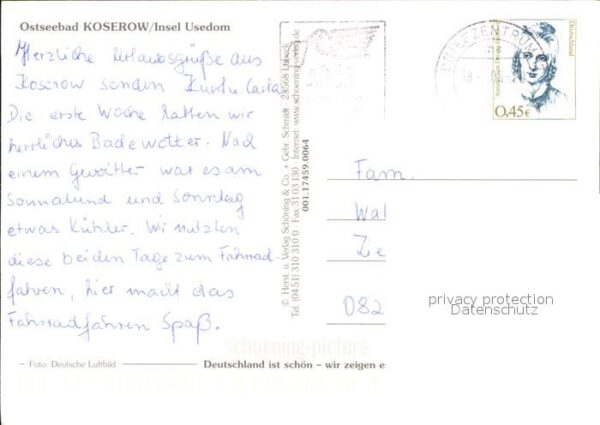 Ostseebad KOSEROW/Insel Usedom
Herzliche Urlausgrüße aus
Koserow senden Kurt u. Carla
Die erste Woche hatten wir
herrliches Badewetter. Nach
einem Gewitter war es am
Sonnabend und Sonntag
etwas kühler. Wir nutzten
diese beiden Tage zum Fahrrad-
fahren, hier macht das
Fahrradfahren Spaß.
– Foto: Deutsche Luftbild
Deutschland ist schön – wir zeigen e
© Herst. u. Verlag Schöning & Co. + Gebr. Schmidt · 23568 Lübeck
Tel. (04 51) 310 310 0 · Fax 31 03 130 · Internet: www.schoening-verlag.de
001.17459.0064
BRIEFZENTRUM
Deutschland
0,45€
Fam.
Wal
Zie
082
privacy protection
Datenschutz
schoening-picture